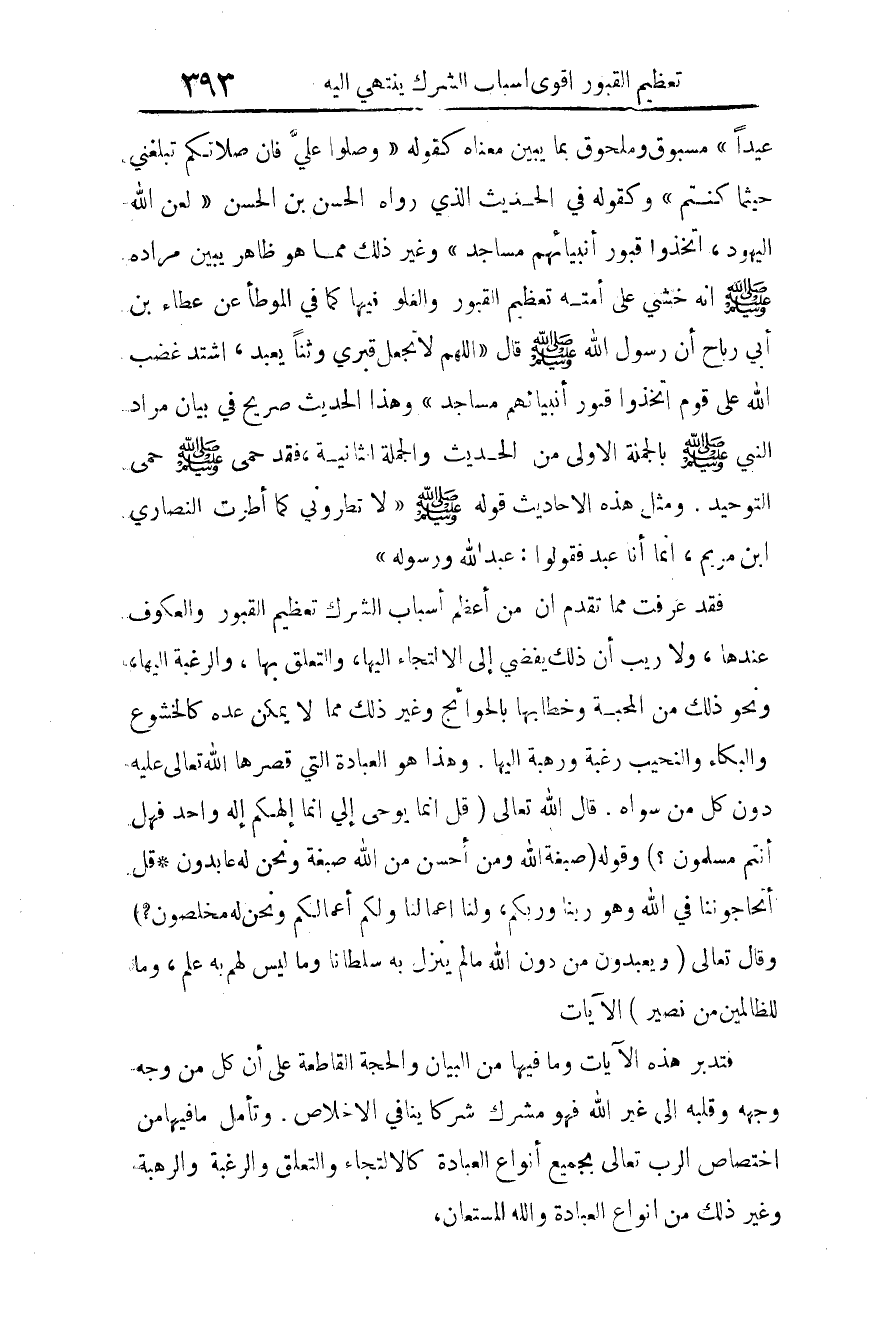 تعظيم القبور اقوى اسباب الشرك ينتهي اليه ٣٩٣
عيداً » مسبوق وملحوق بما يبين معناه كقوله « وصلوا عليَّ فان صلاتكم تبلغني
حيثما كنتم » وكقوله في الحديث الذي رواه الحسن بن الحسن « لعن الله
اليهود ، اتخذوا قبور أنبيائهم مساجد » وغير ذلك مما هو ظاهر يبين مراده
ﷺ انه خشي على أمته تعظيم القبور والغلو فيها كما في الموطأ عن عطاء بن
أبي رباح أن رسول الله ﷺ قال « اللهم لا تجعل قبري وثناً يعبد ، اشتد غضب
الله على قوم اتخذوا قبور أنبيائهم مساجد » وهذا الحديث صريح في بيان مراد
النبي ﷺ بالجملة الاولى من الحديث والجملة الثانية ، فقد حمى ﷺ حمى
التوحيد . ومثل هذه الاحاديث قوله ﷺ « لا تطروني كما أطرت النصارى
ابن مريم ، انما أنا عبد فقولوا : عبد الله ورسوله »
فقد عرفت مما تقدم ان من أعظم أسباب الشرك تعظيم القبور والعكوف
عندها ، ولا ريب أن ذلك يفضي إلى الالتجاء اليها، والتعلق بها ، والرغبة اليها،
ونحو ذلك من المحبة وخطابها بالحوائج وغير ذلك مما لا يمكن عده كالخشوع
والبكاء والنحيب رغبة ورهبة اليها . وهذا هو العبادة التي قصرها الله تعالى عليه
دون كل من سواه . قال الله تعالى ( قل انما يوحى إلي انما إلهكم إله واحد فهل
أنتم مسلمون ؟) وقوله (صبغة الله ومن أحسن من الله صبغة ونحن له عابدون * قل
أتحاجوننا في الله وهو ربنا وربكم، ولنا اعمالنا ولكم أعمالكم ونحن له مخلصون؟)
وقال تعالى ( ويعبدون من دون الله مالم ينزل به سلطانا وما ليس لهم به علم ، وما
للظالمين من نصير ) الآيات
فتدبر هذه الآيات وما فيها من البيان والحجة القاطعة على أن كل من وجه
وجهه وقلبه الى غير الله فهو مشرك شركا ينافي الاخلاص . وتأمل ما فيها من
اختصاص الرب تعالى بجميع أنواع العبادة كالالتجاء والتعلق والرغبة والرهبة
وغير ذلك من انواع العبادة والله المستعان،